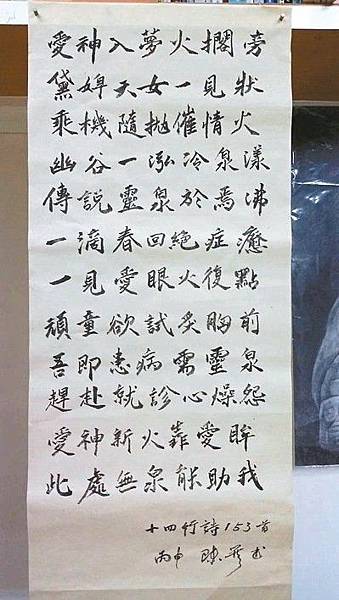 愛神入夢火擱旁
黛婢天女一見狀
乘機隨拋催情火
幽谷一泓冷泉漾
傳說靈泉於焉沸
一滴春回絕症癒
一見愛眼火復點
頑童欲試炙胸前
吾即患病需靈泉
趕赴就診心燥怨
愛神新火靠愛眸
此處無泉能助我
十四行詩153首
丙申